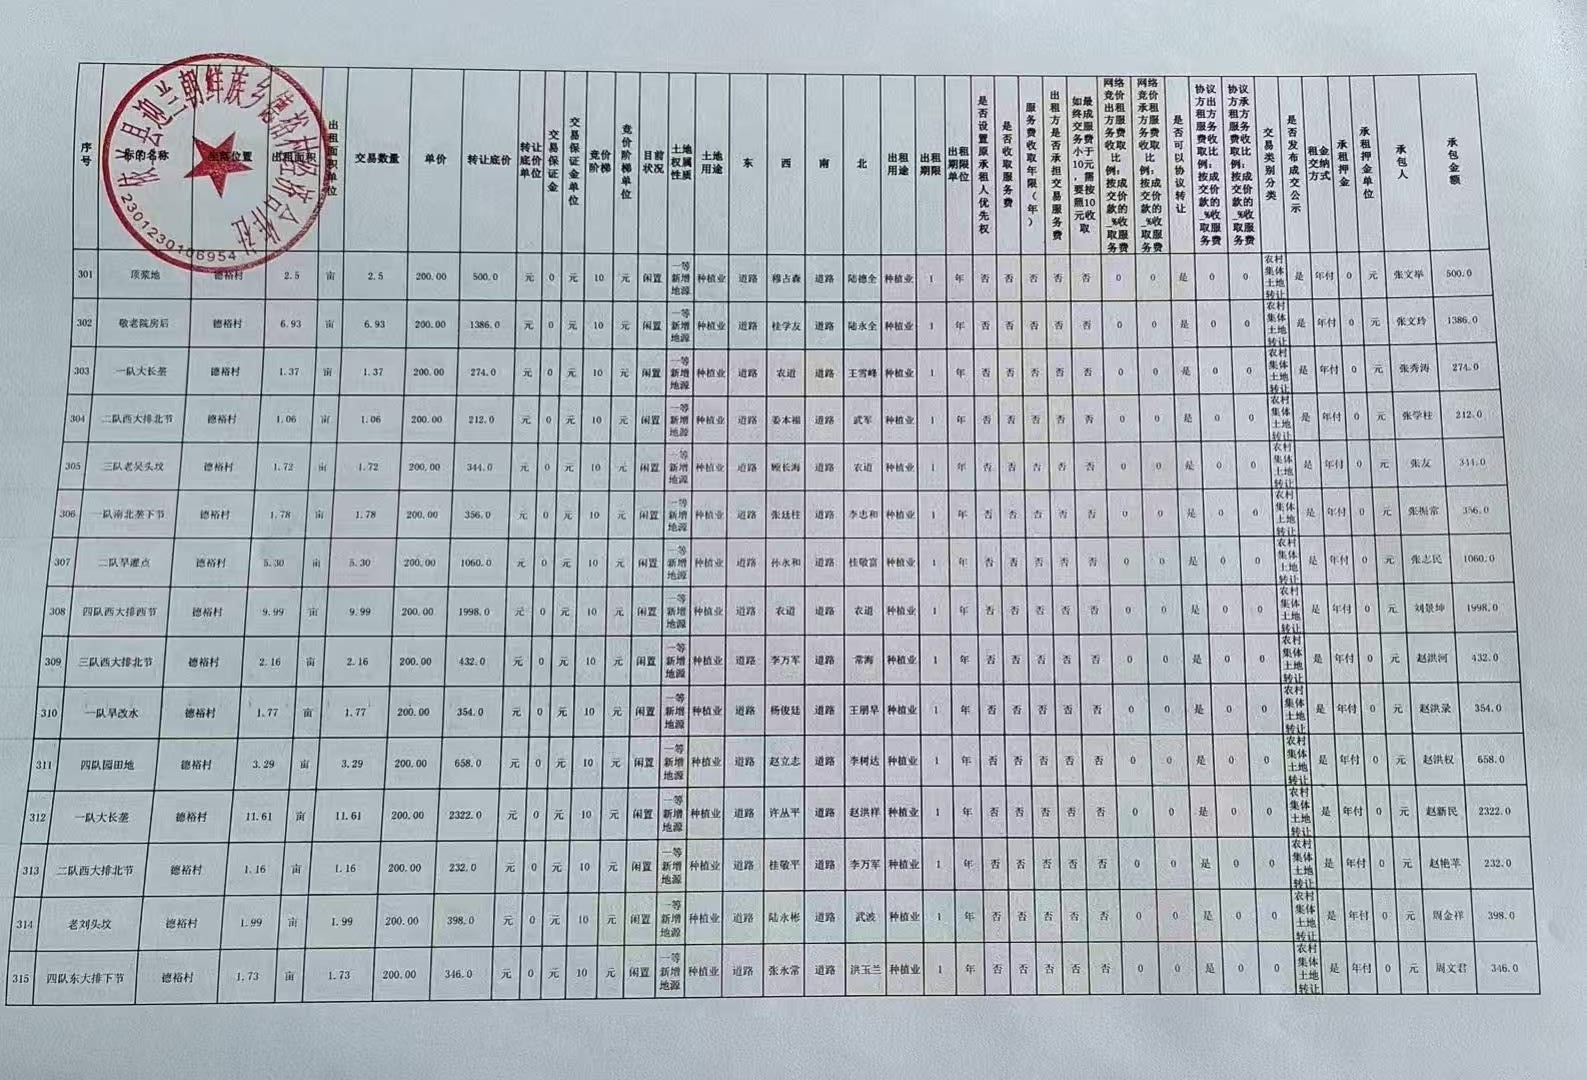 依兰县迎兰朝鲜族乡德裕村经济合作社
2301230106954
序号 标的名称 坐落位置 出租面积 出租面积单位 交易数量 单价 转让底价 转让底价单位 交易保证金 交易保证金单位 竞价阶梯 竞价阶梯单位 目前状况 土地权属性质 土地用途 东 西 南 北 出租用途 出租期限 出租期限单位 是否设置原承租人优先权 是否收取服务费 服务费收取年限(年) 出租方是否承担交易服务费 如最终成交服务费小于10元,需要按照10元收取 网络竞价出租方服务费收取比例:按成交价款的_%收取服务费 网络竞价承租方服务费收取比例:按成交价款的_%收取服务费 是否可以协议转让 协议方出租方服务费收取比例:按成交价款的_%收取服务费 协议方承租方服务费收取比例:按成交价款的_%收取服务费 交易类别分类 是否发布成交公示 租金交纳方式 承租押金 承租押金单位 承包人 承包金额
301 顶浆地 德裕村 2.5 亩 2.5 200.00 500.0 元 0 元 10 元 闲置 一等新增地源 种植业 道路 穆占森 道路 陆德全 种植业 1 年 否 否 否 否 否 0 0 是 0 0 农村集体土地转让 是 年付 0 元 张文举 500.0
302 敬老院房后 德裕村 6.93 亩 6.93 200.00 1386.0 元 0 元 10 元 闲置 一等新增地源 种植业 道路 桂学友 道路 陆永全 种植业 1 年 否 否 否 否 否 0 0 是 0 0 农村集体土地转让 是 年付 0 元 张文玲 1386.0
303 一队大长垄 德裕村 1.37 亩 1.37 200.00 274.0 元 0 元 10 元 闲置 一等新增地源 种植业 道路 农道 道路 王雪峰 种植业 1 年 否 否 否 否 否 0 0 是 0 0 农村集体土地转让 是 年付 0 元 张秀涛 274.0
304 二队西大排北节 德裕村 1.06 亩 1.06 200.00 212.0 元 0 元 10 元 闲置 一等新增地源 种植业 道路 姜本福 道路 武军 种植业 1 年 否 否 否 否 否 0 0 是 0 0 农村集体土地转让 是 年付 0 元 张学柱 212.0
305 三队老吴头坟 德裕村 1.72 亩 1.72 200.00 344.0 元 0 元 10 元 闲置 一等新增地源 种植业 道路 顾长海 道路 农道 种植业 1 年 否 否 否 否 否 0 0 是 0 0 农村集体土地转让 是 年付 0 元 张友 344.0
306 一队南北垄下节 德裕村 1.78 亩 1.78 200.00 356.0 元 0 元 10 元 闲置 一等新增地源 种植业 道路 张廷柱 道路 李忠和 种植业 1 年 否 否 否 否 否 0 0 是 0 0 农村集体土地转让 是 年付 0 元 张振常 356.0
307 二队旱灌点 德裕村 5.30 亩 5.30 200.00 1060.0 元 0 元 10 元 闲置 一等新增地源 种植业 道路 孙永和 道路 桂敬富 种植业 1 年 否 否 否 否 否 0 0 是 0 0 农村集体土地转让 是 年付 0 元 张志民 1060.0
308 四队西大排西节 德裕村 9.99 亩 9.99 200.00 1998.0 元 0 元 10 元 闲置 一等新增地源 种植业 道路 农道 道路 农道 种植业 1 年 否 否 否 否 否 0 0 是 0 0 农村集体土地转让 是 年付 0 元 刘景坤 1998.0
309 三队西大排北节 德裕村 2.16 亩 2.16 200.00 432.0 元 0 元 10 元 闲置 一等新增地源 种植业 道路 李万军 道路 常海 种植业 1 年 否 否 否 否 否 0 0 是 0 0 农村集体土地转让 是 年付 0 元 赵洪河 432.0
310 一队旱改水 德裕村 1.77 亩 1.77 200.00 354.0 元 0 元 10 元 闲置 一等新增地源 种植业 道路 杨俊廷 道路 王朋早 种植业 1 年 否 否 否 否 否 0 0 是 0 0 农村集体土地转让 是 年付 0 元 赵洪录 354.0
311 四队园田地 德裕村 3.29 亩 3.29 200.00 658.0 元 0 元 10 元 闲置 一等新增地源 种植业 道路 赵立志 道路 李树达 种植业 1 年 否 否 否 否 否 0 0 是 0 0 农村集体土地转让 是 年付 0 元 赵洪权 658.0
312 一队大长垄 德裕村 11.61 亩 11.61 200.00 2322.0 元 0 元 10 元 闲置 一等新增地源 种植业 道路 许丛平 道路 赵洪祥 种植业 1 年 否 否 否 否 否 0 0 是 0 0 农村集体土地转让 是 年付 0 元 赵新民 2322.0
313 二队西大排北节 德裕村 1.16 亩 1.16 200.00 232.0 元 0 元 10 元 闲置 一等新增地源 种植业 道路 桂敬平 道路 李万军 种植业 1 年 否 否 否 否 否 0 0 是 0 0 农村集体土地转让 是 年付 0 元 赵艳苹 232.0
314 老刘头坟 德裕村 1.99 亩 1.99 200.00 398.0 元 0 元 10 元 闲置 一等新增地源 种植业 道路 陆永彬 道路 武波 种植业 1 年 否 否 否 否 否 0 0 是 0 0 农村集体土地转让 是 年付 0 元 周金祥 398.0
315 四队东大排下节 德裕村 1.73 亩 1.73 200.00 346.0 元 0 元 10 元 闲置 一等新增地源 种植业 道路 张永常 道路 洪玉兰 种植业 1 年 否 否 否 否 否 0 0 是 0 0 农村集体土地转让 是 年付 0 元 周文君 346.0